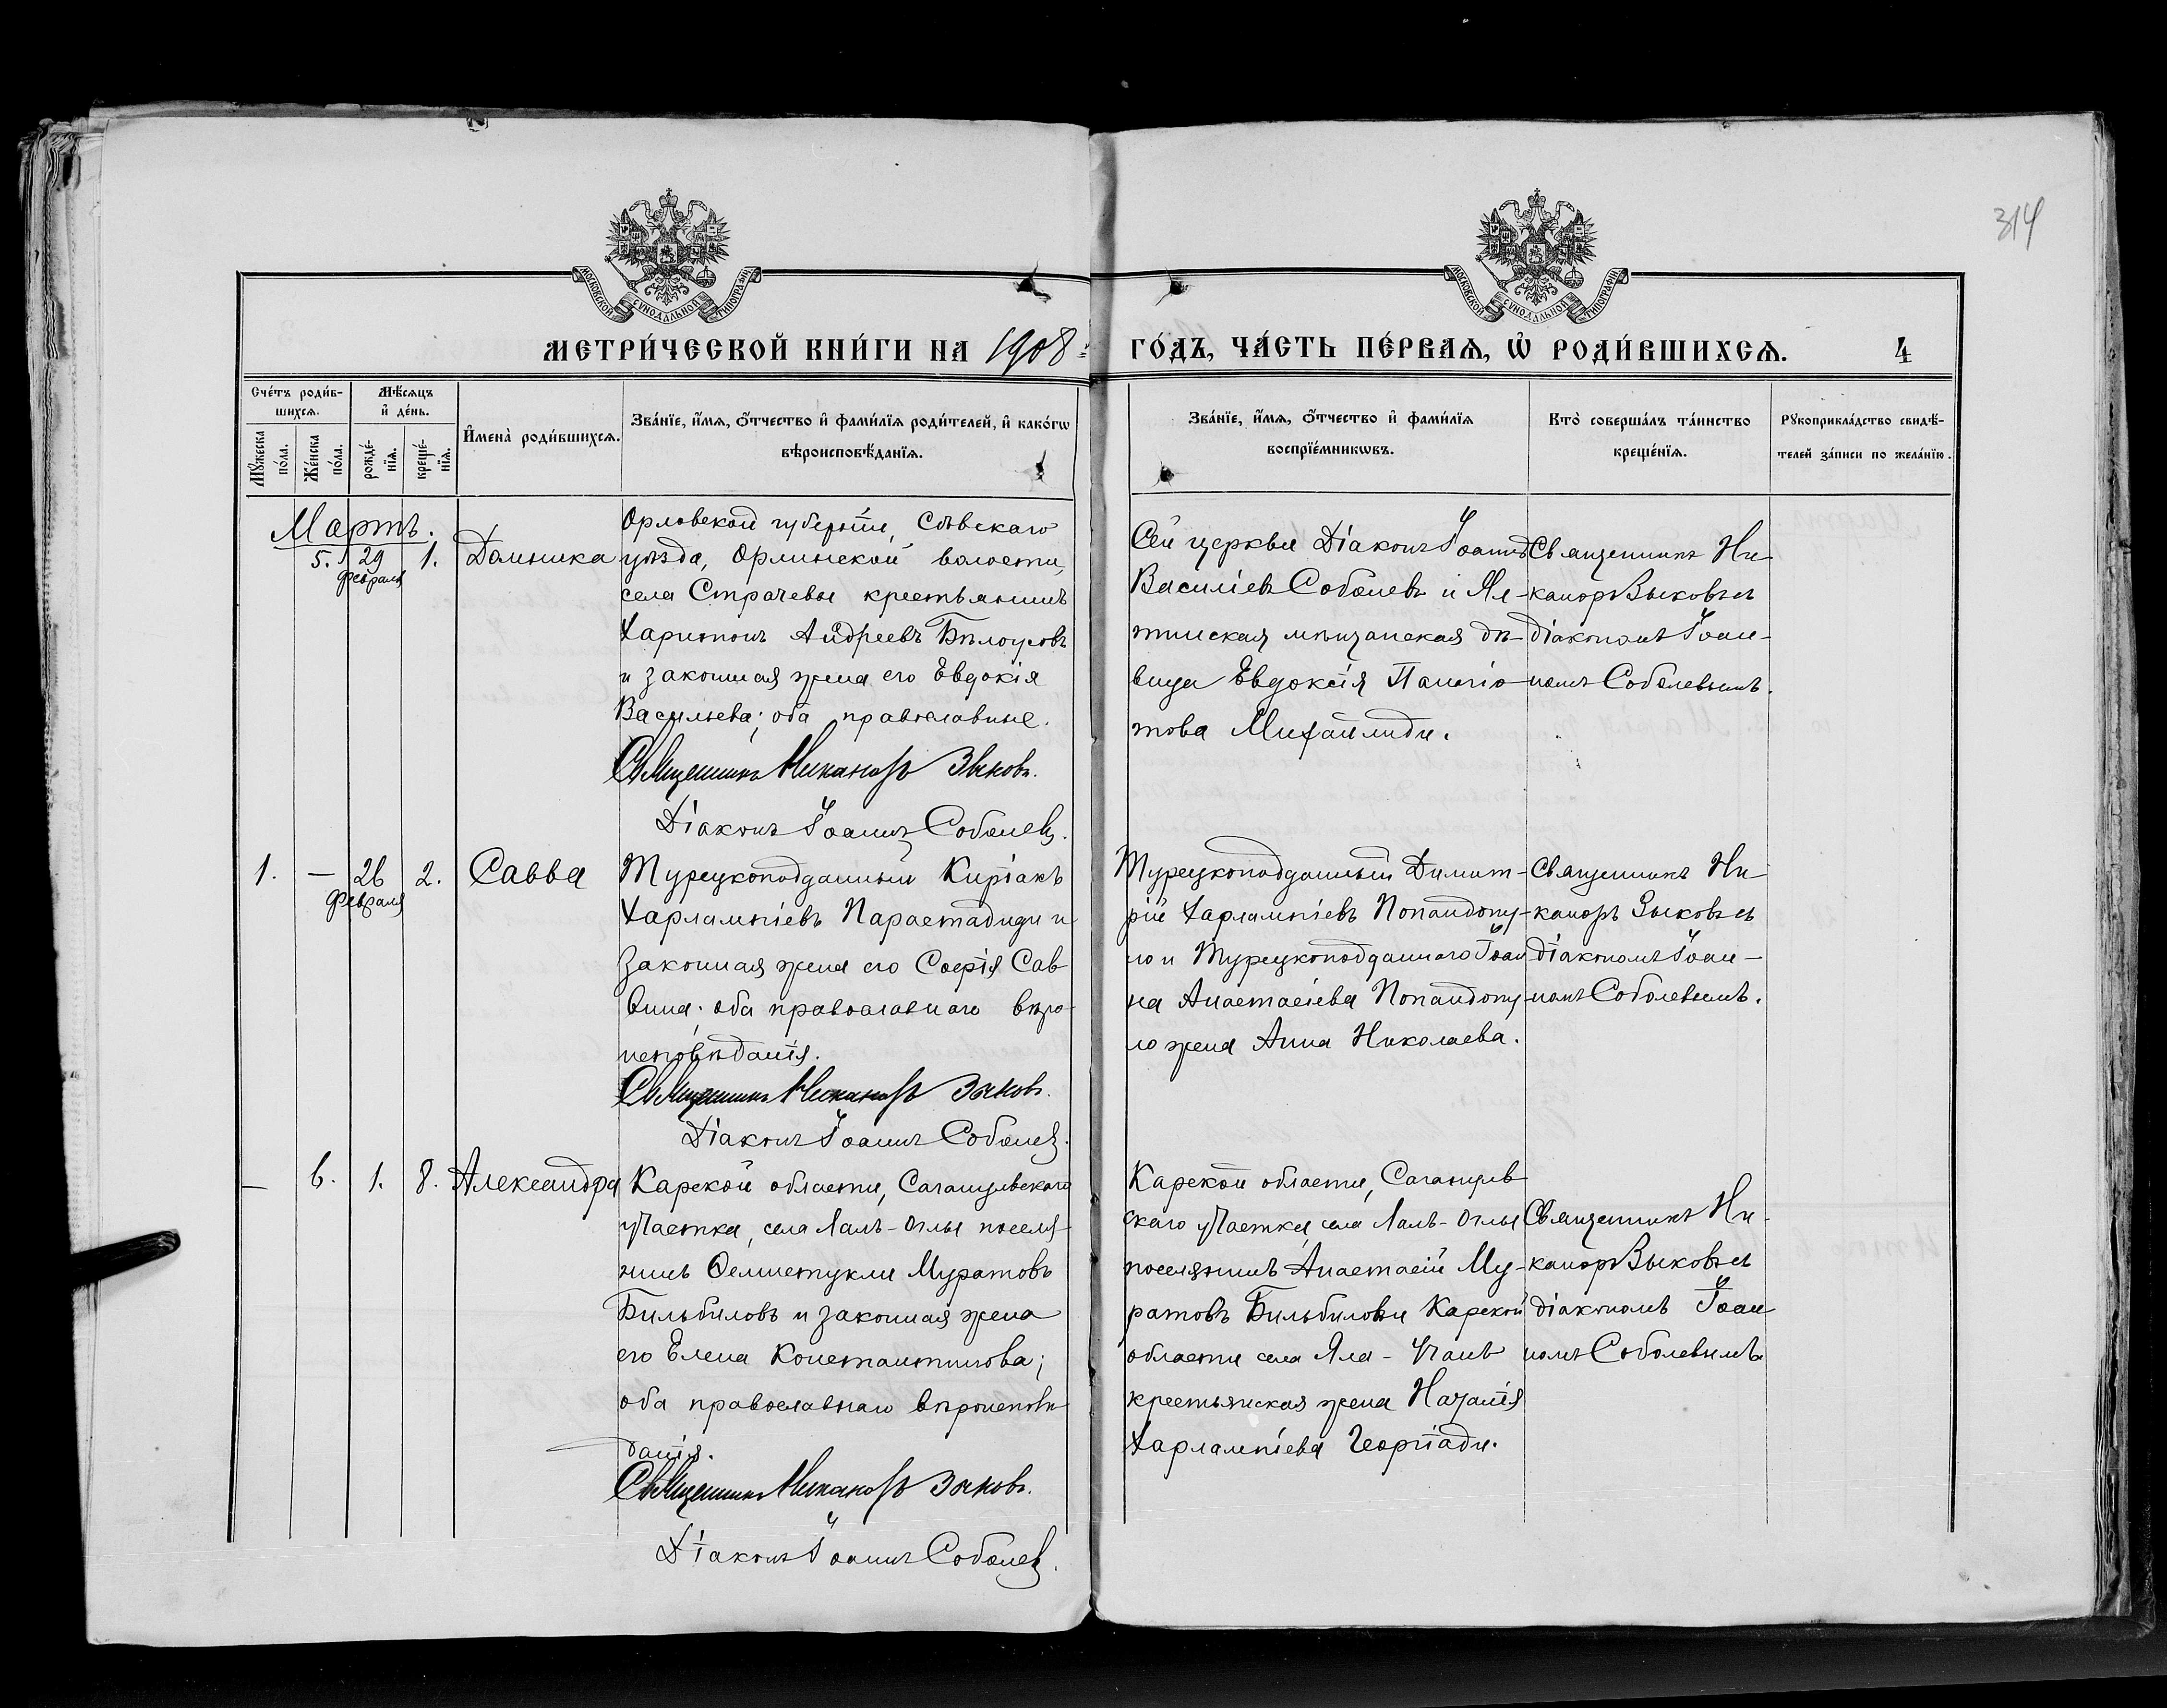 314
МОСКОВСКОЙ СУНОДАЛЬНОЙ ТИПОГРАФІИ
МОСКОВСКОЙ СУНОДАЛЬНОЙ ТИПОГРАФІИ
МЕТРИ́ЧЕСКОЙ КНИ́ГИ НА 1908
ГО́ДЪ, ЧА́СТЬ ПЕ́РВАѦ, Ѡ РОДИ́ВШИХСѦ. 4
Сче́тъ роди́в-
шихсѧ.
Мѣ́сѧцъ
и҆ де́нь.
Мꙋ́жеска по́ла.
Же́нска по́ла.
рожде́-
нїѧ.
креще́-
нїѧ.
И҆мена̀ роди́вшихсѧ.
Зва́нїе, и҆́мѧ, ѻ҆́тчество и҆ фами́лїѧ роди́телей, и҆ како́гѡ
вѣроисповѣ́данїѧ.
Зва́нїе, и҆́мѧ, ѻ҆́тчество и҆ фами́лїѧ
воспрїе́мникѡвъ.
Кто̀ соверша́лъ та́инство
креще́нїѧ.
Рꙋкоприкла́дство свидѣ́-
телей за́писи по жела́нїю.
Мартъ.
5. 29 февраля 1.
Домника
Орловской губерніи, Сѣвскаго
уѣзда, Орлинской волости,
села Страчевы крестьянинъ
Харитонъ Андреевъ Бѣлоусовъ
и законная жена его Евдокія
Васильева; оба православные.
Священникъ Никаноръ Зыковъ.
Діаконъ Іоаннъ Соболевъ.
Сей церкви Діаконъ Іоаннъ
Василіевъ Соболевъ и Ял-
тинская мѣщанская дѣ-
вица Евдокія Панагіо-
това Михаилиди.
Священникъ Ни-
каноръ Зыковъ съ
діакономъ Іоан-
номъ Соболевымъ.
1. — 26 февраля 2.
Савва
Турецкоподданный Киріакъ
Харлампіевъ Парастадиди и
законная жена его Софія Сав-
вина; оба православнаго вѣро-
исповѣданія.
Священникъ Никаноръ Зыковъ.
Діаконъ Іоаннъ Соболевъ.
Турецкоподданный Димит-
рій Харлампіевъ Попандопу-
ло и Турецкоподданнаго Іоан
на Анастасіева Попандопу-
ло жена Анна Николаева.
Священникъ Ни-
каноръ Зыковъ съ
діакономъ Іоан-
номъ Соболевымъ.
— 6. 1. 8.
Александра
Карской области,
участка, села Ялъ-Оглы поселя-
нинъ Муратовъ
Бильбиловъ и законная жена
его Елена Константинова;
оба православнаго вѣроисповѣ-
данія.
Священникъ Никаноръ Зыковъ.
Діаконъ Іоаннъ Соболевъ.
Карской области,
скаго участка, села Ялъ-Оглы
поселянинъ Анастасій Му-
ратовъ Бильбиловъ и Карской
области села Яла-Чамъ
крестьянская жена Наталія
Харлампіева Георгіади.
Священникъ Ни-
каноръ Зыковъ съ
діакономъ Іоан
номъ Соболевымъ